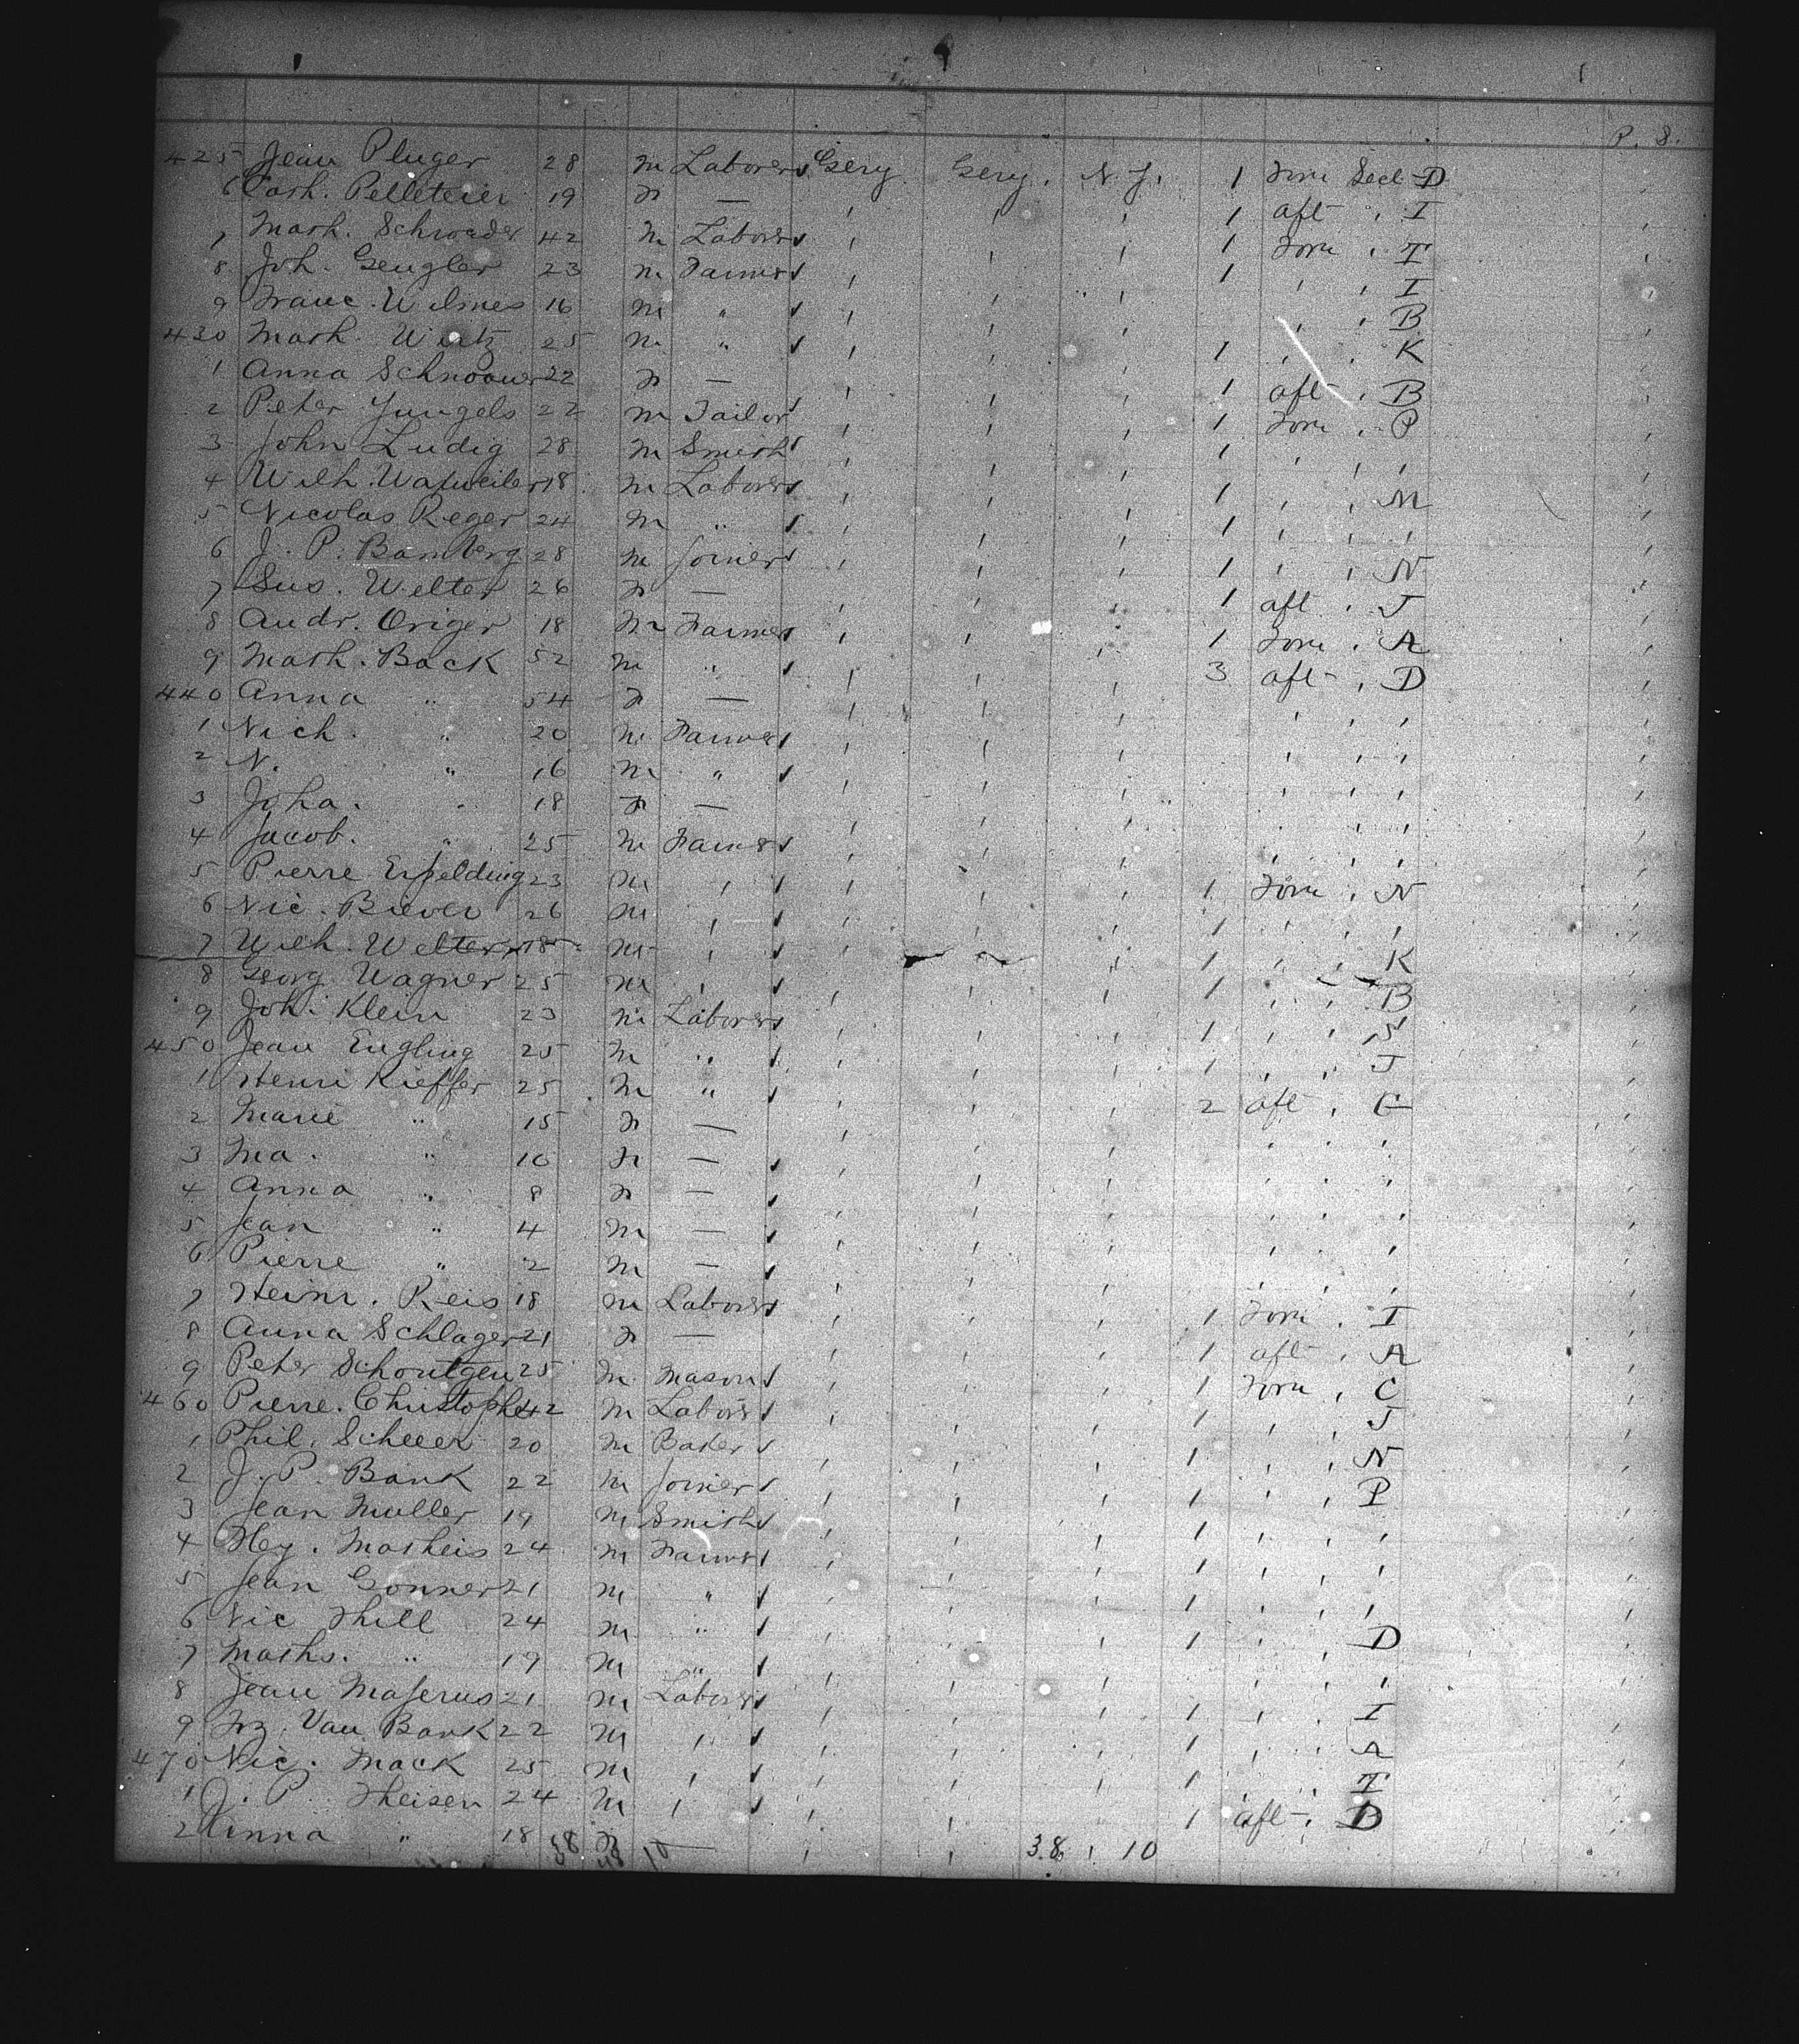 P. S.
425 Jean Pluger 28 m Laborer Gery Gery. N. Y. 1 Forw Sect D
6 Cath. Pelletier 19 f — 1 aft I
7 Math. Schroeder 42 m Laborer 1 Forw I
8 Joh. Gengler 23 m Farmer 1 I
9 Franc. Wilmes 16 m " B
430 Math. Wirtz 25 m " 1 K
1 Anna 22 f — 1 aft B
2 Peter Jungels 22 m Tailor 1 Forw P
3 John Ludig 28 m Smith 1
4 Wilh. 18 m Laborer 1 M
5 Nicolas Reger 24 m " 1
6 J. P. Bamberg 28 m Joiner 1 N
7 Sus. Welter 26 f — 1 aft J
8 Andr. Origer 18 m Farmer 1 Forw A
9 Math. Back 52 m " 3 aft D
440 Anna " 54 f —
1 Nich. " 20 m Farmer
2 N. " 16 m "
3 Joha. " 18 f —
4 Jacob. " 25 m Farmer
5 Pierre Erpelding 23 m 1 Forw N
6 Nic. Biever 26 m 1
7 Wilh. Welter 18 m 1 K
8 Georg Wagner 25 m 1 B
9 Joh. Klein 23 m Laborer 1 S
450 Jean Engling 25 m " 1 J
1 Henri Kieffer 25 m " 2 aft C
2 Marie " 15 f —
3 Ma. " 10 f —
4 Anna " 8 f —
5 Jean " 4 m —
6 Pierre " 2 m —
7 Heinr. Reis 18 m Laborer 1 Forw I
8 Anna Schlager 21 f — 1 aft A
9 Peter Schoutgen 25 m Mason 1 Forw C
460 Pierre. Christophe 42 m Labors 1 J
1 Phil. Scheer 20 m Baker 1 N
2 J. P. Bank 22 m Joiner 1 P
3 Jean Muller 19 m Smith 1
4 Hey. Matheis 24 m Farmer 1
5 Jean Gonner 21 m " 1
6 Nic Thill 24 m " 1 D
7 Maths. " 19 m "
8 Jean Maserus 21 m Laborer 1 I
9 Frz. Van Bank 22 m 1 A
470 Nic. Mack 25 m 1 I
1 J. P. Theisen 24 m 1 aft D
2 Anna " 18 f —
38 48 10 38 10